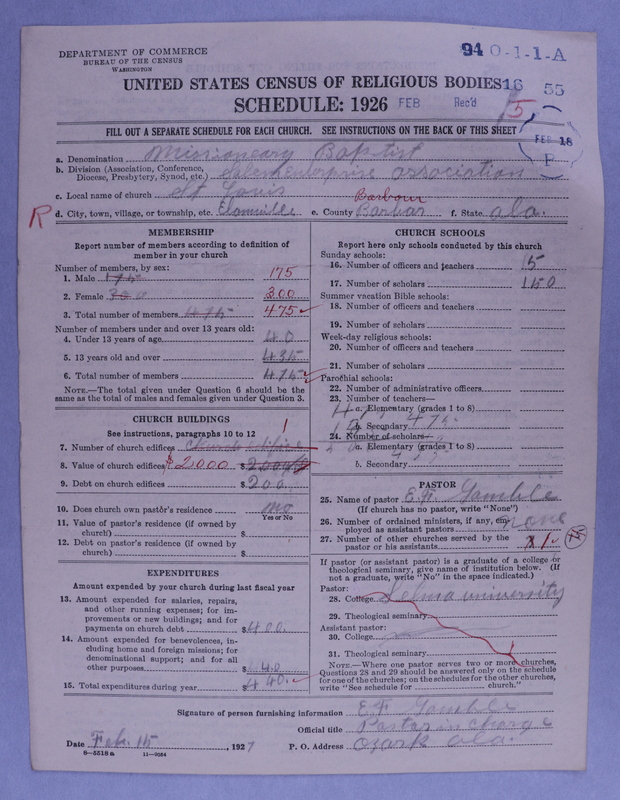 DEPARTMENT OF COMMERCE
BUREAU OF THE CENSUS
WASHINGTON
94 0-1-1-A
UNITED STATES CENSUS OF RELIGIOUS BODIES
16 55
SCHEDULE: 1926
FEB Rec'd
5
FILL OUT A SEPARATE SCHEDULE FOR EACH CHURCH. SEE INSTRUCTIONS ON THE BACK OF THIS SHEET
FEB 18
a. Denomination Missionary Baptist
b. Division (Association, Conference, Diocese, Presbytery, Synod, etc.) association
c. Local name of church St Louis
Barbour
R
d. City, town, village, or township, etc. Elamville e. County Barbar f. State ala.
MEMBERSHIP
Report number of members according to definition of member in your church
Number of members, by sex:
1. Male 175 175
2. Female 300 300
3. Total number of members 475 475
Number of members under and over 13 years old:
4. Under 13 years of age 40
5. 13 years old and over 435
6. Total number of members 475
NOTE.—The total given under Question 6 should be the same as the total of males and females given under Question 3.
CHURCH BUILDINGS
See instructions, paragraphs 10 to 12
1
7. Number of church edifices church edifice
8. Value of church edifices $2000 $
9. Debt on church edifices $200.
10. Does church own pastor's residence no
Yes or No
11. Value of pastor's residence (if owned by church) $
12. Debt on pastor's residence (if owned by church) $
EXPENDITURES
Amount expended by your church during last fiscal year
13. Amount expended for salaries, repairs, and other running expenses; for improvements or new buildings; and for payments on church debt $400.
14. Amount expended for benevolences, including home and foreign missions; for denominational support; and for all other purposes $40
15. Total expenditures during year $440.
CHURCH SCHOOLS
Report here only schools conducted by this church
Sunday schools:
16. Number of officers and teachers 5
17. Number of scholars 150
Summer vacation Bible schools:
18. Number of officers and teachers
19. Number of scholars
Week-day religious schools:
20. Number of officers and teachers
21. Number of scholars
Parochial schools:
22. Number of administrative officers
23. Number of teachers—
a. Elementary (grades 1 to 8)
b. Secondary
24. Number of scholars—
a. Elementary (grades 1 to 8)
b. Secondary
PASTOR
25. Name of pastor
(If church has no pastor, write "None")
26. Number of ordained ministers, if any, employed as assistant pastors none
27. Number of other churches served by the pastor or his assistants 1
If pastor (or assistant pastor) is a graduate of a college or theological seminary, give name of institution below. (If not a graduate, write "No" in the space indicated.)
Pastor:
28. College Selma university
29. Theological seminary
Assistant pastor:
30. College
31. Theological seminary
NOTE.—Where one pastor serves two or more churches, Questions 28 and 29 should be answered only on the schedule for one of the churches; on the schedules for the other churches, write "See schedule for church."
Signature of person furnishing information
Official title Pastor in Charge
Date Feb. 15, 1927 P. O. Address Ozark ala.
8—5518a